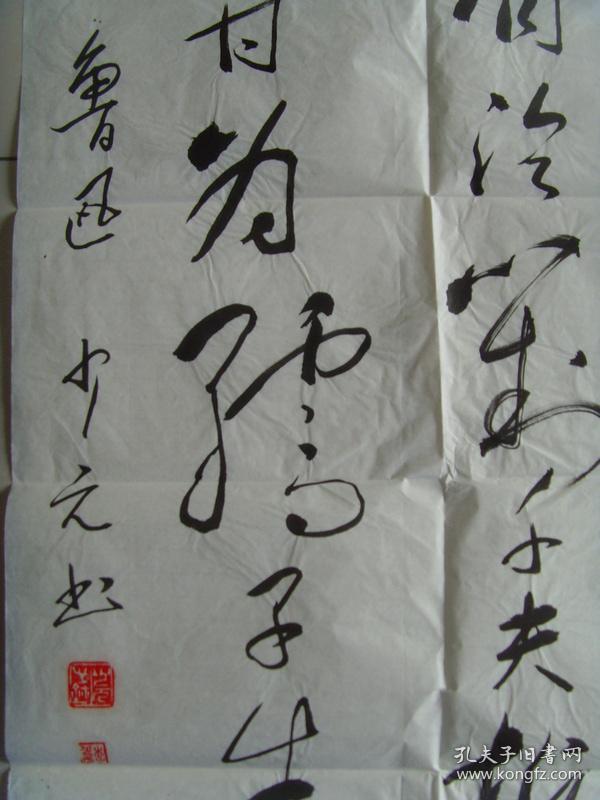 眉冷對千夫指
甘为孺子牛
魯迅 少元书
孔夫子旧书网
www.kongfz.com